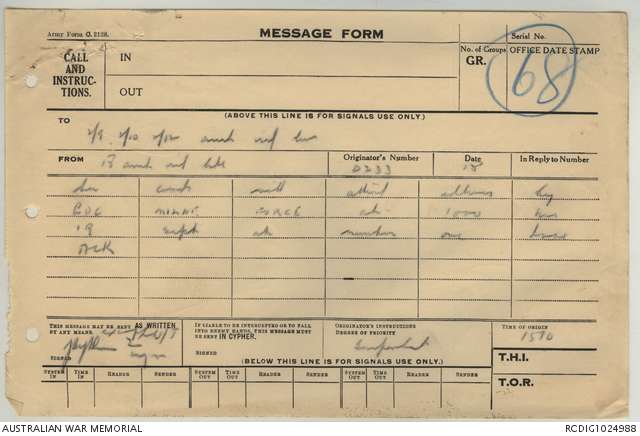 Army Form C. 2128.
MESSAGE FORM
Serial No.
CALL
AND
INSTRUC-
TIONS.
IN
OUT
No. of Groups
GR.
OFFICE DATE STAMP
68
(ABOVE THIS LINE IS FOR SIGNALS USE ONLY.)
TO
2/9 2/10 2/12 aust inf bn
FROM
18 aust inf bde
Originator's Number
O233
Date
18
In Reply to Number
will attend address by
GOC MILNE FORCE at 1000 hrs
19 sept at number one
ACK
THIS MESSAGE MAY BE SENT AS WRITTEN
BY ANY MEANS.
SIGNED
IF LIABLE TO BE INTERCEPTED OR TO FALL
INTO ENEMY HANDS, THIS MESSAGE MUST
BE SENT IN CYPHER.
SIGNED
ORIGINATOR'S INSTRUCTIONS
DEGREE OF PRIORITY
Important
TIME OF ORIGIN
1510
(BELOW THIS LINE IS FOR SIGNALS USE ONLY.)
T.H.I.
T.O.R.
SYSTEM IN
TIME IN
READER
SENDER
SYSTEM OUT
TIME OUT
READER
SENDER
SYSTEM OUT
TIME OUT
READER
SENDER
AUSTRALIAN WAR MEMORIAL
RCDIG1024988